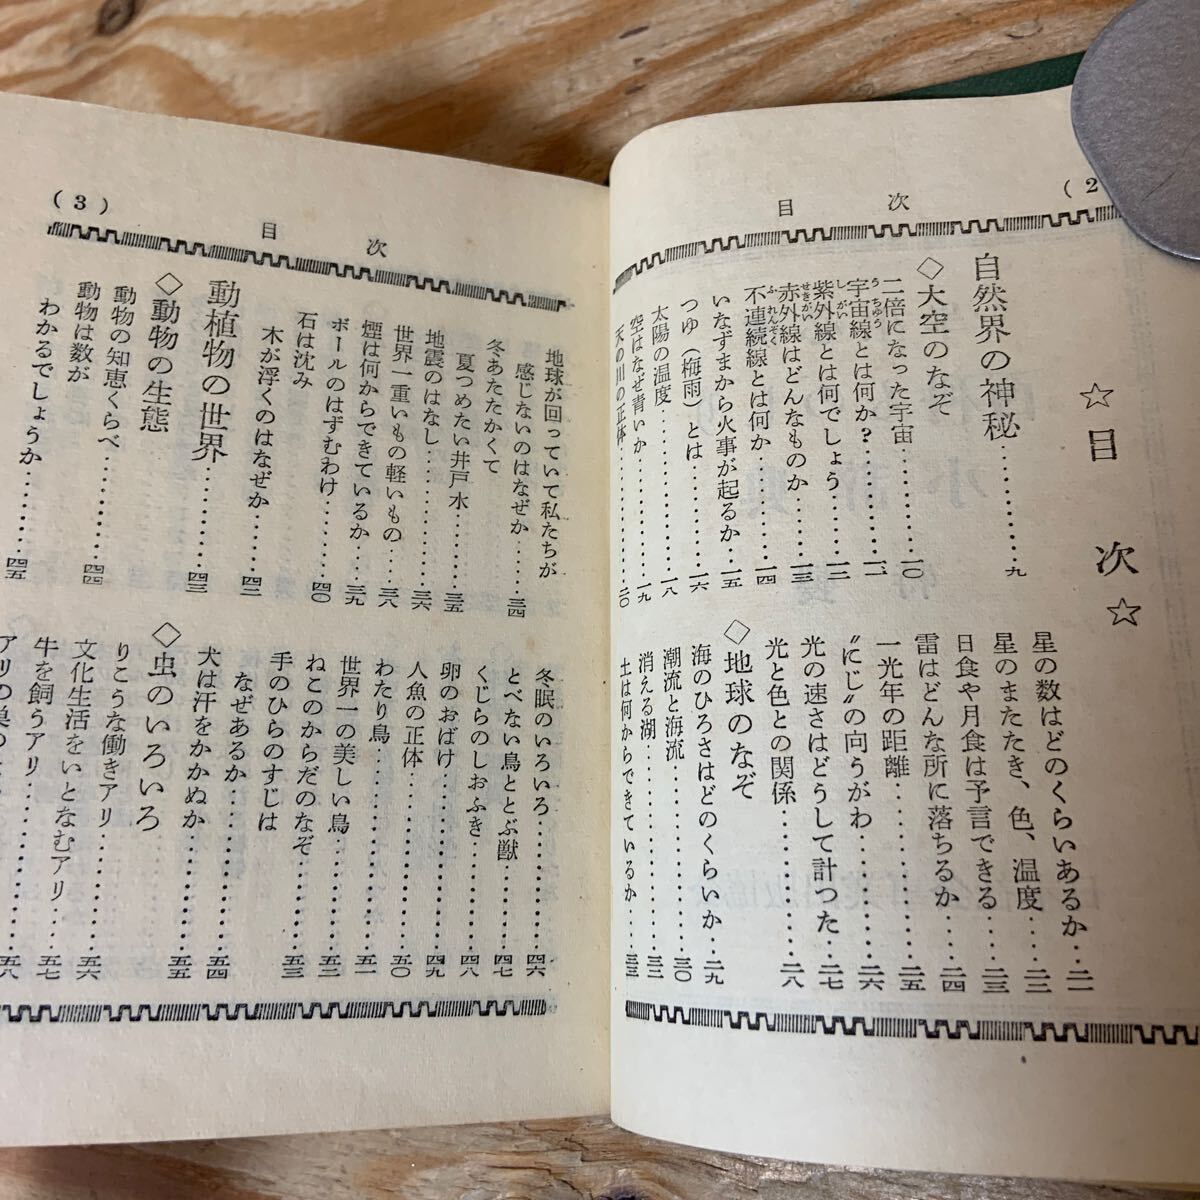 (2
目次
☆目次☆
自然界の神秘……九
◇大空のなぞ
二倍になった宇宙……一〇
宇宙線とは何か?……一一
紫外線とは何でしょう……一二
赤外線はどんなものか……一三
不連続線とは何か……一四
いなずまから火事が起るか……一五
つゆ(梅雨)とは……一六
太陽の温度……一八
空はなぜ青いか……一九
天の川の正体……二〇
星の数はどのくらいあるか……二一
星のまたたき、色、温度……二二
日食や月食は予言できる……二三
雷はどんな所に落ちるか……二四
一光年の距離……二五
〝にじ〟の向うがわ……二六
光の速さはどうして計つた……二七
光と色との関係……二八
◇地球のなぞ
海のひろさはどのくらいか……二九
潮流と海流……三〇
消える湖……三二
土は何からできているか……三三
(3)
目次
地球が回っていて私たちが
感じないのはなぜか……三四
冬あたたかくて
夏つめたい井戸水……三五
地震のはなし……三六
世界一重いもの軽いもの……三八
煙は何からできているか……三九
ボールのはずむわけ……四〇
石は沈み
木が浮くのはなぜか……四二
動植物の世界……四三
◇動物の生態
動物の知恵くらべ……四四
動物は数が
わかるでしょうか……四五
冬眠のいろいろ……四六
とべない鳥ととぶ獣……四七
くじらのしおふき……四八
卵のおばけ……四九
人魚の正体……五〇
わたり鳥……五一
世界一の美しい鳥……五二
ねこのからだのなぞ……五三
手のひらのすじは
なぜあるか……五四
犬は汗をかかぬか……五五
◇虫のいろいろ
りこうな働きアリ……五六
文化生活をいとなむアリ……五七
牛を飼うアリ……五八
アリの巣の